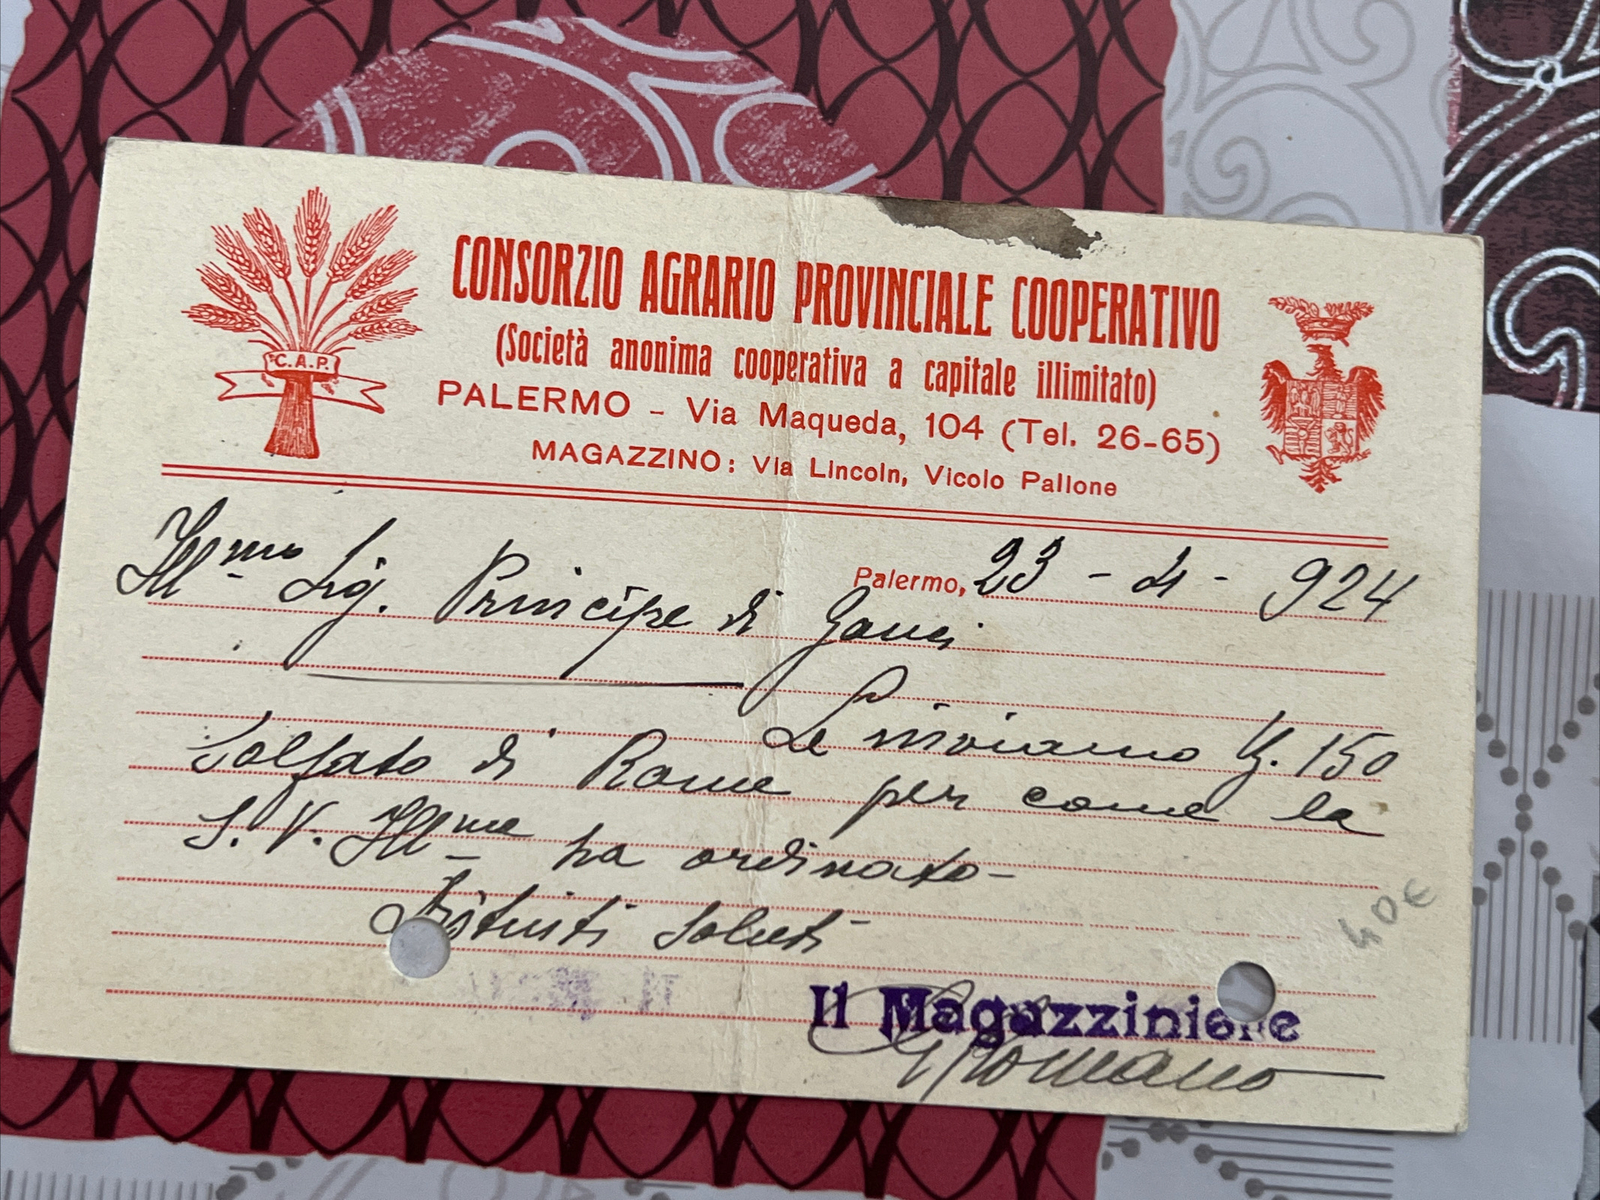 C.A.P.
CONSORZIO AGRARIO PROVINCIALE COOPERATIVO
(Società anonima cooperativa a capitale illimitato)
PALERMO - Via Maqueda, 104 (Tel. 26-65)
MAGAZZINO: Via Lincoln, Vicolo Pallone
Palermo, 23 - 4 - 924
Ill.mo Sig. Principe di Ganci
Le inviamo Kg. 150
Solfato di Rame per come la
S. V. Ill.ma ha ordinato -
Distinti Saluti
Il Magazziniere
Romano
40€